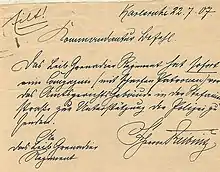 Eilt!
Karlsruhe 22.7.07.
Kommandantur Befehl.
Das Leib Grenadier Regiment hat sofort
eine Compagnie (mit scharfen Patronen) vor
das Amtsgerichtsgebäude in der
Straße zur Unterstützung der Polizei zu
senden.
An
das Leib Grenadier
Regiment